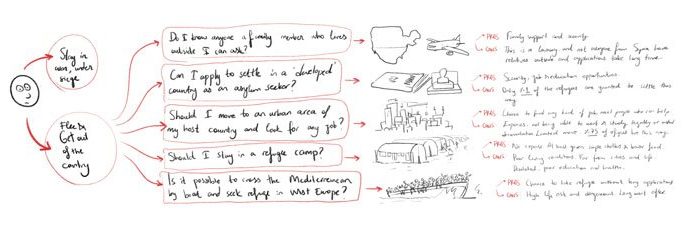 Stay in
war, under
siege
Flee &
Get out
of the
country
Do I know anyone a family member who lives
outside I can ask?
PROS Family support and security.
CONS This is a luxury and not everyone from Syria have
relatives outside and applications take long time
Can I apply to settle in a 'developed'
country as an asylum seeker?
PROS Security, job & education opportunities.
CONS Only of the refugees are granted to settle this
way.
Should I move to an urban area of
my host country and look for any job?
PROS Chance to find any kind of job, meet people who can help.
CONS Expensive, not being able to work & study legally or
documentation Limited move of refugees live this way.
Should I stay in a refugee camp?
PROS No expense At least given some shelter & food.
CONS Poor living conditions Far from cities and life
poor education and health.
Is it possible to cross the Mediterranean
by boat and seek refuge in West Europe?
PROS Chance to take refuge without long applications
CONS High life risk and long wait after